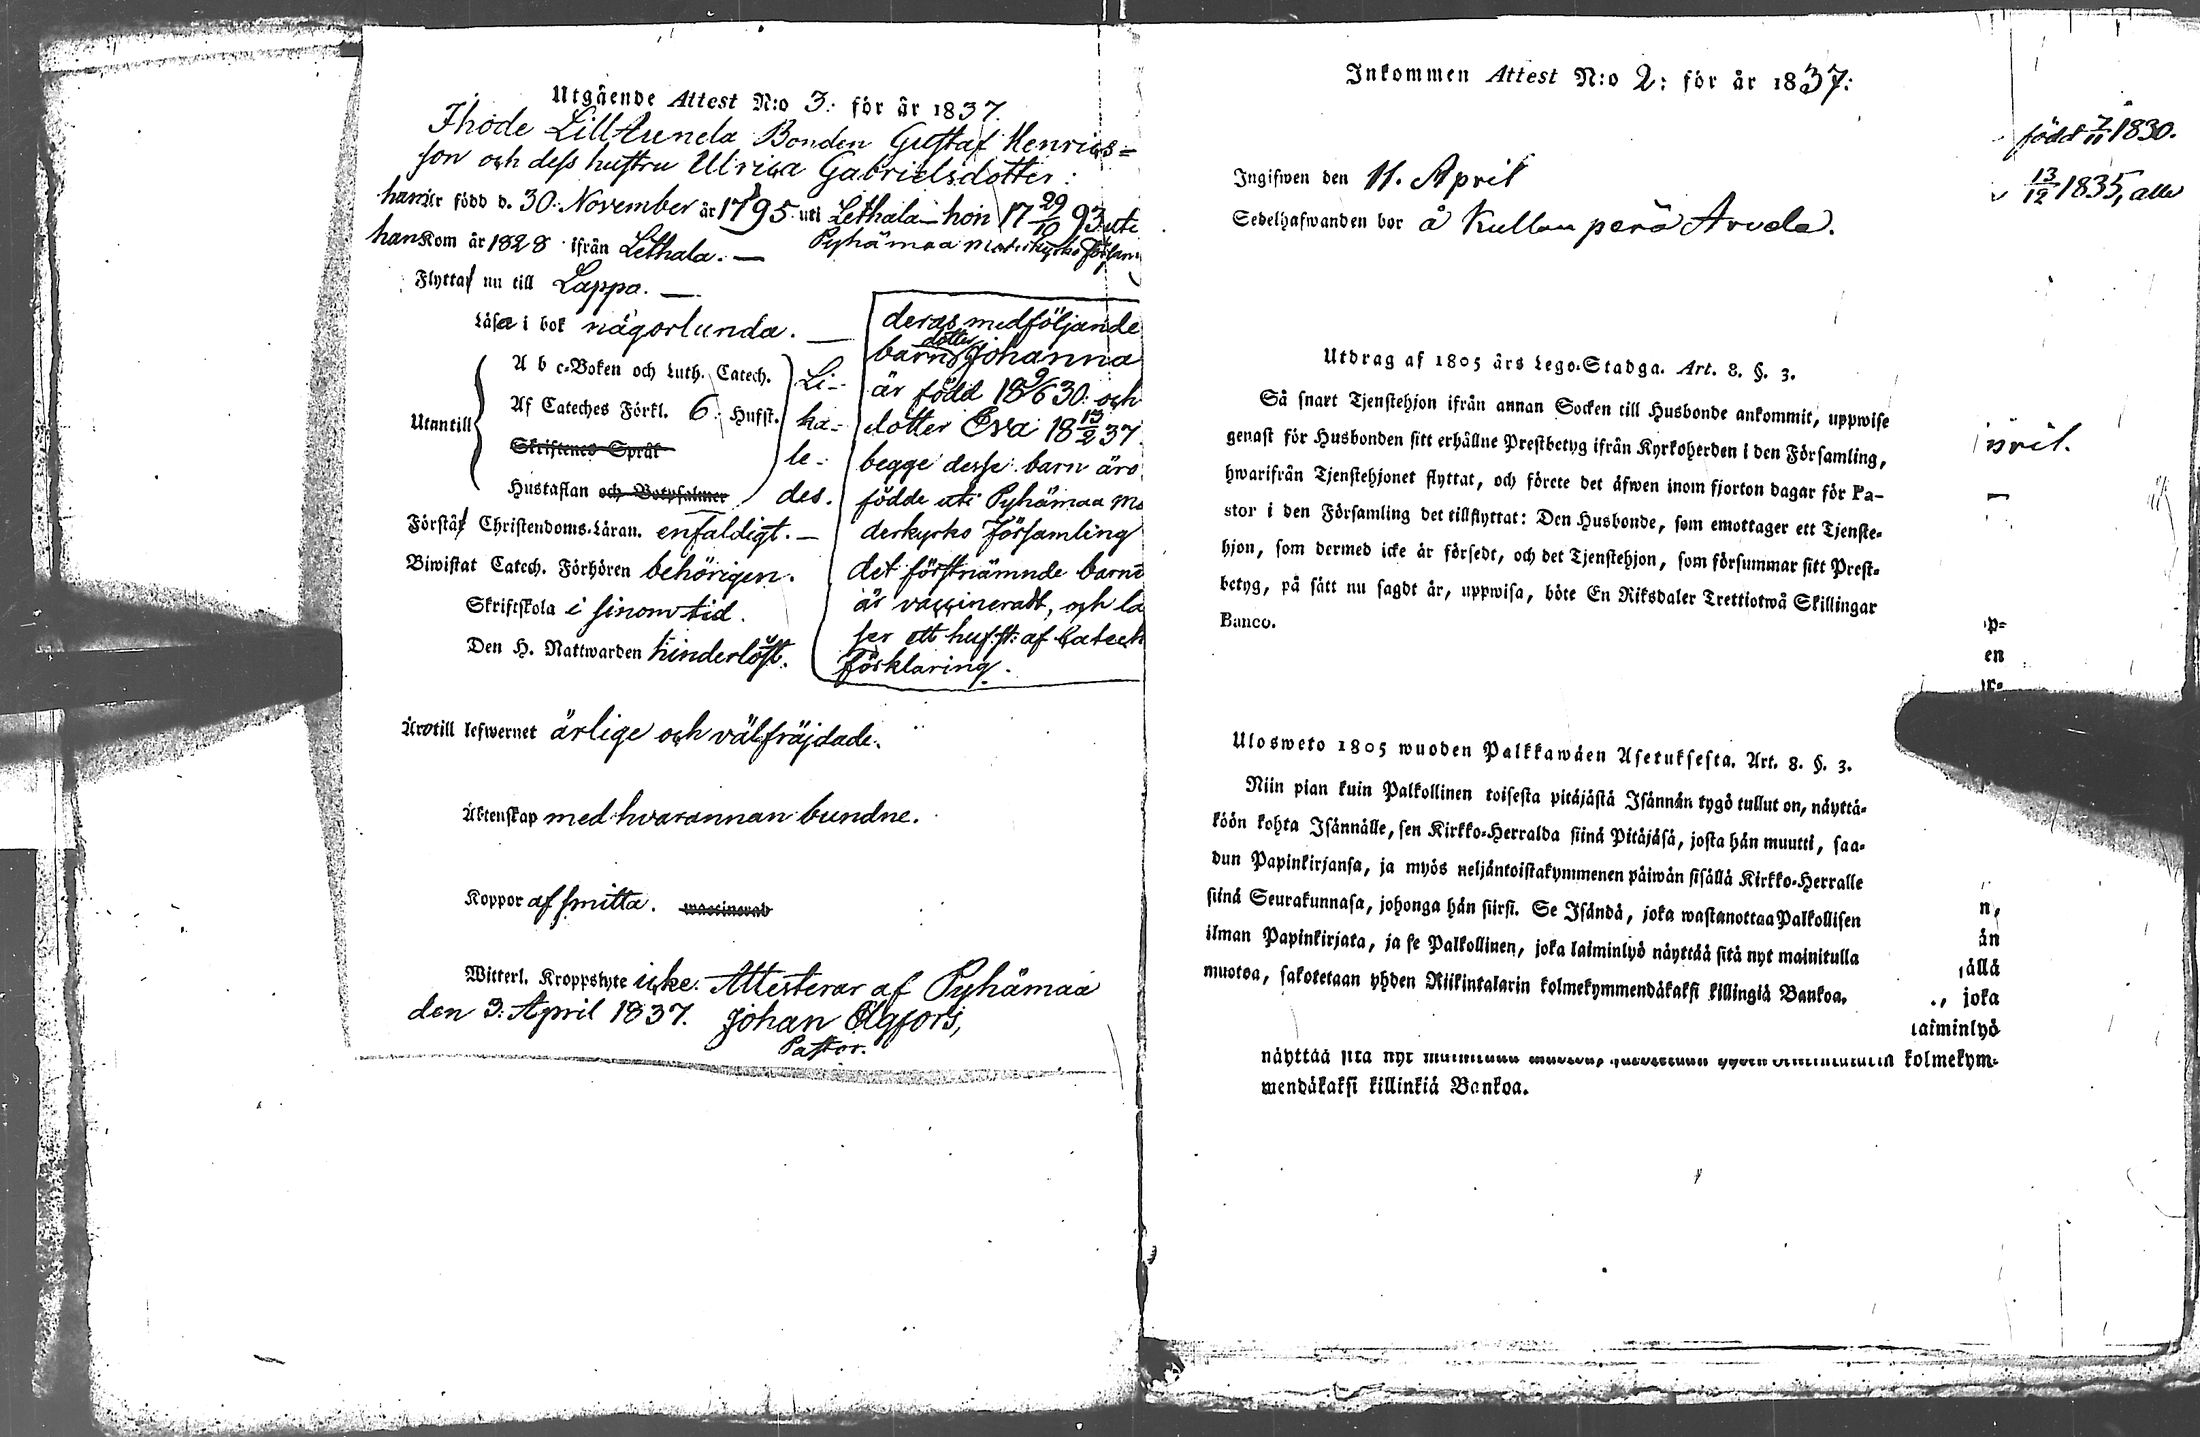 Utgående Attest N:o 3. för år 1837.
Ihode Lill Aunela Bonden Gustaf Henrics=
son och dess hustru Ulrica Gabrielsdotter:
han är född d. 30. November år 1795. uti Lethala — hon 17 29/10 93. uti
han Kom år 1828 ifrån Lethala. — Pyhämaa moderkyrko Församl
Flytta nu till Lappo. —
Läsa i bok någorlunda. —
Utantill
A b c-Boken och Luth. Catech.
Af Cateches Förkl. 6. Hufst.
Skriftenes Språk
Hustaflan och Botpsalmer
Li-
ka-
le-
des.
Förstå Christendoms-Läran. enfaldigt. —
Biwistat Catech. Förhören behörigen.
Skriftskola i sinom tid.
Den H. Nattwarden hinderlöst.
deras medföljande
barn dotter Johanna
är född 18 9/6 30. och
dotter Eva 18 13/2 37.
begge desse barn äro
födde uti Pyhämaa Mo
derkyrko Församling
det förstnämnde barnet
är vaccineradt, och lä
ser ett hufst: af Catech
förklaring.
Äro till lefwernet ärlige och välfräjdade.
Äktenskap med hvarannan bundne.
Koppor af smitta. waccinerad
Witterl. Kroppslyte icke. Attesterar af Pyhämaa
den 3. April 1837. Johan Elgfors,
Pastor.
Inkommen Attest N:o 2: för år 1837:
Ingifwen den 11. April
Sedelhafwanden bor å Kullanperä Arvela.
Utdrag af 1805 års Lego-Stadga. Art. 8. §. 3.
Så snart Tjenstehjon ifrån annan Socken till Husbonde ankommit, uppwise
genast för Husbonden sitt erhållne Prestbetyg ifrån Kyrkoherden i den Församling,
hwarifrån Tjenstehjonet flyttat, och förete det äfwen inom fjorton dagar för Pa-
stor i den Församling det tillflyttat: Den Husbonde, som emottager ett Tjenste-
hjon, som dermed icke är försedt, och det Tjenstehjon, som försummar sitt Prest-
betyg, på sätt nu sagdt är, uppwisa, böte En Riksdaler Trettiotwå Skillingar
Banco.
Ulosweto 1805 wuoden Palkkawäen Asetuksesta. Art. 8. §. 3.
Niin pian kuin Palkollinen toisesta pitäjästä Isännän tygö tullut on, näyttä-
köön kohta Isännälle, sen Kirkko-Herralda siinä Pitäjäsä, josta hän muutti, saa-
dun Papinkirjansa, ja myös neljäntoistakymmenen päiwän sisällä Kirkko-Herralle
siinä Seurakunnasa, johonga hän siirsi. Se Isändä, joka wastanottaa Palkollisen
ilman Papinkirjata, ja se Palkollinen, joka laiminlyö näyttää sitä nyt mainitulla
muotoa, sakotetaan yhden Riikintalarin kolmekymmendäkaksi killingiä Bankoa.
född 7/11 1830.
13/12 1835, alla
pril.
p-
en
r-
n,
än
ällä
., joka
laiminlyö
näyttää sitä nyt kolmekym-
mendäkaksi killinkiä Bankoa.